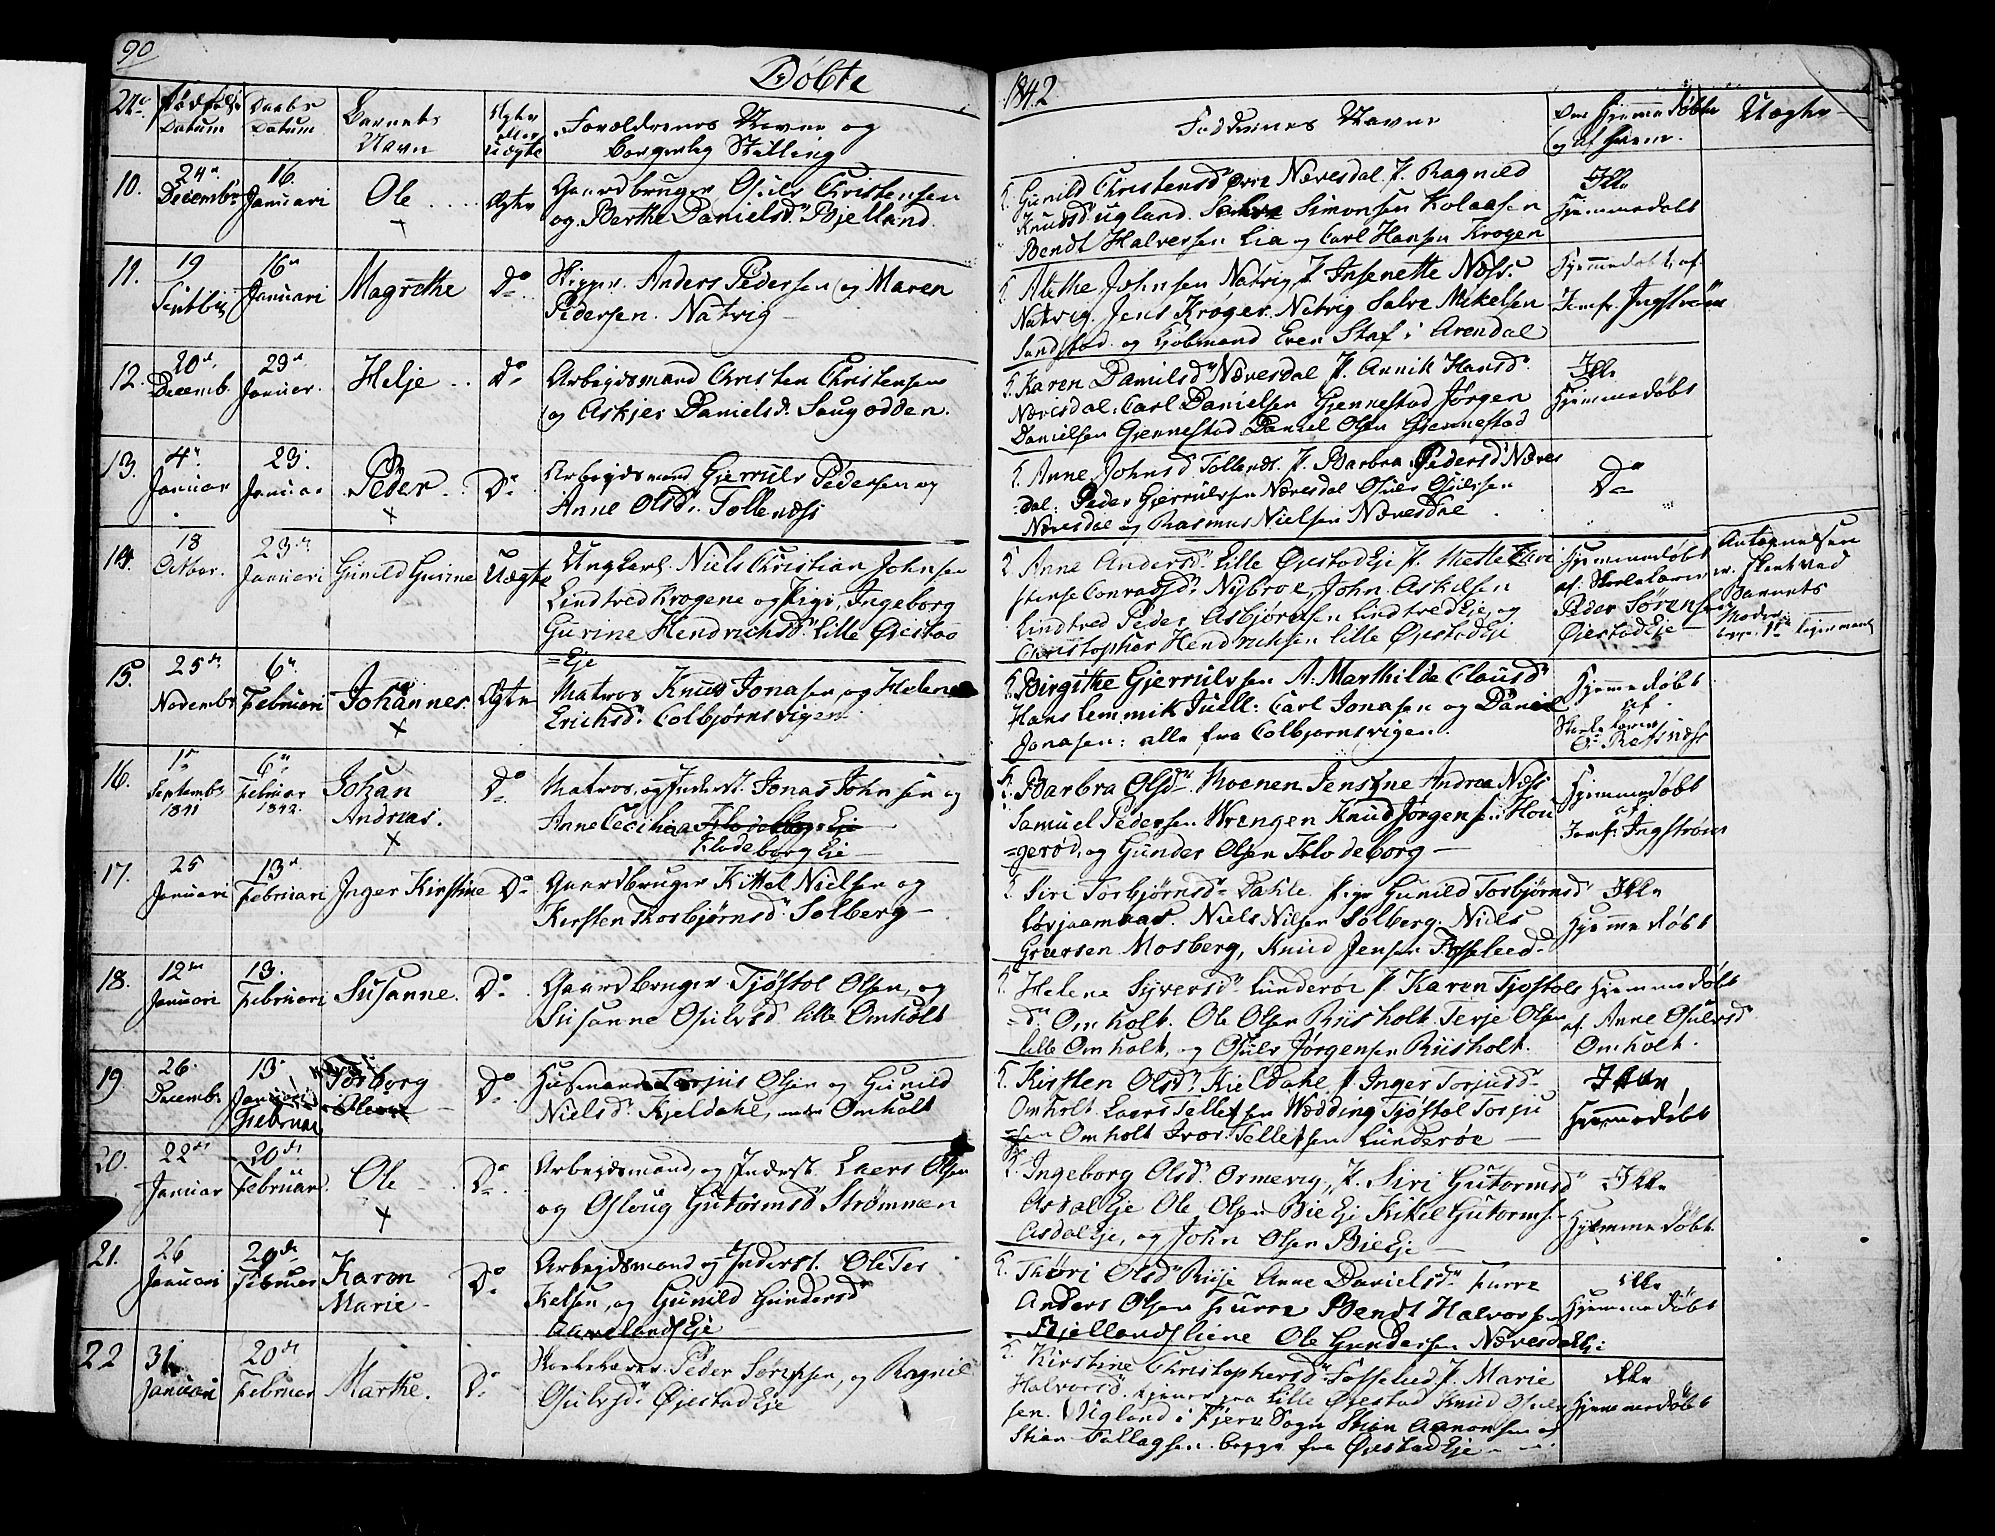 90
Döbte
1842
No
Födsels Datum
Daabs Datum
Barnets Navn
Ægte eller Uægte
Forældrenes Navne og
borgerlig Stilling
Faddernes Navne
Om Hjemmedöbte
og af hvem.
Uægte
10.
24de Decembr
16. Januari
Ole
Ægte
Gaardbruger Osuls Christensen
og Berthe Danielsd. Bjelland.
Gunild Christensd. Nævesdal P. Ragnild
Knudsd. Ugland. Simonsen Kolaasen
Bendt Halversen Lia og Carl Hansen Krogen
Ikke
Hjemmedøbt
11.
19 Septbr
16de Januari
Magrethe
Do
Anders Pedersen og Maren
Pedersen. Natvig
Alethe Johnsen Natvig P. Insenette Næss:
Natvig. Jens Krøger Natvig Salve Mikelsen
Sandstad og Even Staf i Arendal
Hjemmedøbt af
Jomfr. Ingstrøm
12.
20de Decemb.
23de Januar.
Helje
Do
Arbeydsmand Christen Christensen
og Askjer Danielsd. Saugodden.
Karen Danielsd. Nævesdal P. Annik Hansd.
Nævesdal. Carl Danielsen Gjennestad Jørgen
Danielsen Gjennestad Daniel Olsen Gjennestad
Ikke
Hjemmedøbt
13.
4de Januar
23. Januar
Peder
Do
Arbeydsmand Gjerruls Pedersen og
Anne Olsd. Tollenæss
Anne Johnsd. Tollends. P. Barbra Pedersd. Næves
dal: Peder Gjerrulsen Nævesdal Osuls Osulsen
Nævesdal og Rasmus Nielsen Nævesdal
Do
14.
18 Octbor.
23de Januari
Gunild Gurine
Uægte
Ungkarl. Niels Christian Johnsen
Lindtved Krogene og Pige, Ingeborg
Gurine Hendrichsd. Lille Øiestad
Eje
Anne Andersd. Lille ØiestadEje P. Mette Chri
stense Conradsd. Nybroe, John Askelsen
Lindtved Peder Asbjørnsen LindtvedEje, og
Christopher Hendrichsen Lille ØiestadEje
Hjemmedøbt
af Skolelærer
Peder Sörensen
ØiestadEje
Antegnelsen
er skeet ved
Barnets
Moders
15.
25de Novembr
6te Februari
Johannes
Ægte
Matros Knud Jonasen, og Helene
Erichsd. Colbjørnsvigen
Birgithe Gjerrulsen A. Marthilde Clausd.
Hans Lemmik Juell: Carl Jonasen og Daniel
Jonasen: alle fra Colbjornsvigen.
Hjemmedøbt
af
Skolelærer
O. Refsnæs
16.
15 Septembr 1841
6te Februar 1842
Johan
Andreas.
Do
Matros, og Inderst. Jonas Johnsen og
Anne Cecilia
FlodeborgEje
Barbra Olsd. Moenen Jensine Andrea Næss
Samuel Pedersen Wrengen Knud Jørgensen Hou
gerød, og Gunder Olsen Flodeborg
Hjemmedøbt
af
Jomfr. Ingstrøm
17.
25 Januari
13de Februari
Inger Kirstine
Do
Gaardbruger Kittel Nielsen og
Kirsten Thorbjørnsd. Solberg
Siri Torbjørnsd. Dahle. Pige Gunild Torbjørnsd.
Løvjaamaas. Niels Nilsen Solberg. Niels
Greersen Mosberg, Knud Jensen Fosseleed
Ikke
Hjemmedøbt
18.
12te Januari
13. Februari
Susanne.
Do
Gaardbruger Tjøstol Olsen, og
Susanne Osulsd. lille Omholt
Helene Syversd. Lunderøe P. Karen Tjøstols
d. Omholt. Ole Olsen Riisholt. Terje Olsen
lille Omholt, og Osuls Jørgensen Riisholt.
Hjemmedøbt
af Anne Osulsd
Omholt.
19
26. Decembr
13. Januari
Februar
Torborg
Oleone
Do
Husmand Torjus Olsen og Gunild
Nielsd. Kjeldahl, Omholt
Kirsten Olsd. Kieldahl P. Inger Torjusd.
Omholt Laers Tellefsen Wedding Tjøstol Torju
sen Omholt Iver Tellefsen Lunderöe
Ikke
Hjemmedøbt
20.
22de Januar
20de Februar
Ole
Do
Arbeydsmand, og Inderst. Laers Olsen
og Osloug Gutormsd. Strømmen
Ingeborg Olsd. Ormevig, P. Siri Gutormsd.
AsdalEje Ole Olsen BieEje Kikel Gutorms
AsdalEje, og John Olsen BieEje
Ikke
Hjemmedøbt
21.
26 Januari
20de Februar
Karen
Marie
Do
Arbeydsmand og Inderst. Ole Ter
kelsen, og Gunild Gundersd.
AamelandsEje
Thöri Olsd. Riise Anne Danielsd. Furre
Anders Olsen Furre Bendt Halvorsen
Bjellandsliene Ole Gundersen NævesdalEje
Ikke
Hjemmedøbt
22
31 Januari
20de Februar
Marthe.
Do
Skolelærer. Peder Sörensen, og Ragnil
Osulsd. ØiestadEje
Kirstine Christophersd. Fosselied P. Marie
Halvorsd. fra Lille Øiestad Knud Osuls
sen. Uigland i Fjere Sogn Stian Aanonsen og
Stian Tallagsen begge fra ØiestadEje
Ikke
Hjemmedøbt